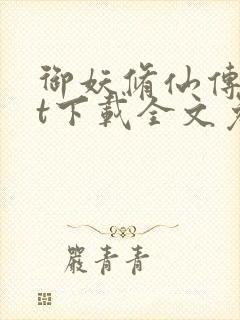 御妖脩仙傳
t下載全文
嚴青青